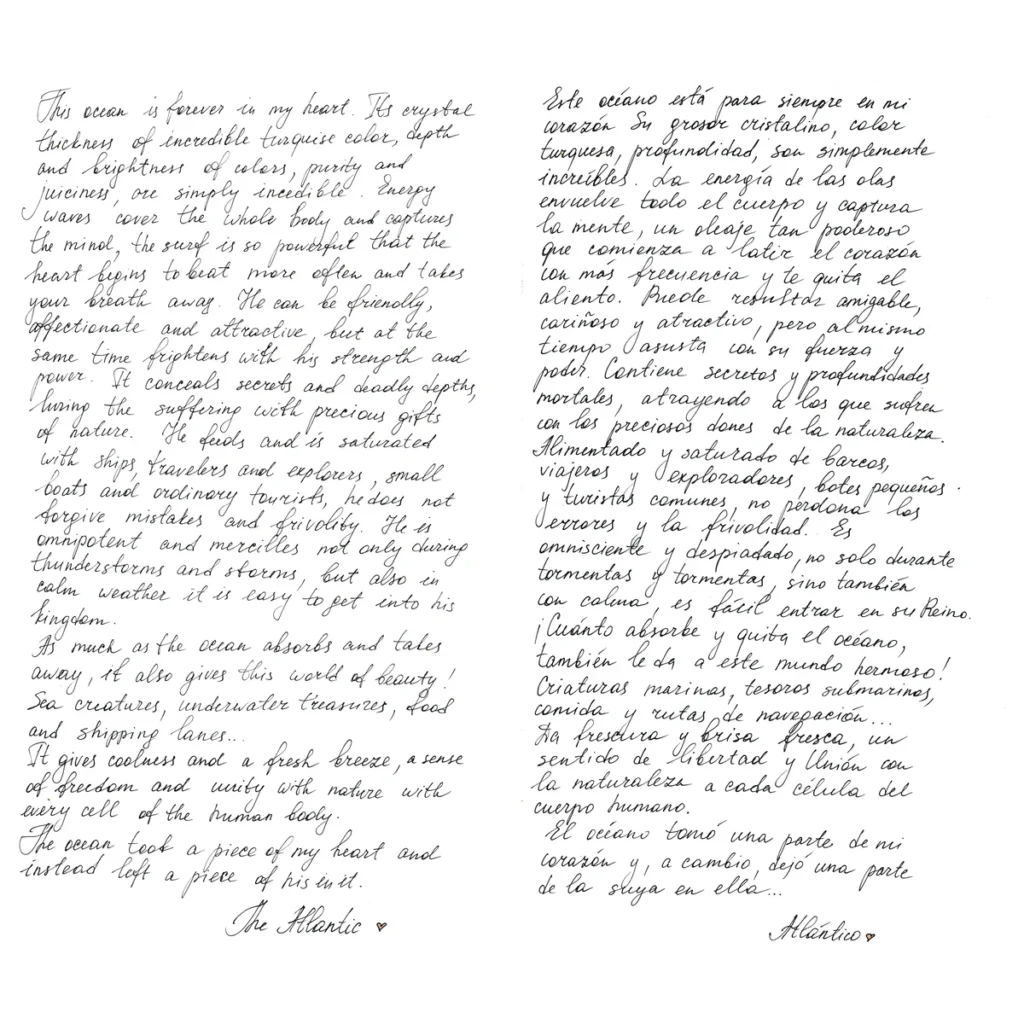 This ocean is forever in my heart. Its crystal
thickness of incredible turquise color, depth
and brightness of colors, purity and
juiciness, are simply incedible. Energy
waves cover the whole body and captures
the mind, the surf is so powerful that the
heart begins to beat more often and takes
your breath away. He can be friendly,
affectionate and attractive, but at the
same time frightens with his strength and
power. It conceals secrets and deadly depths,
luring the suffering with precious gifts
of nature. He feeds and is saturated
with ships, travelers and explorers, small
boats and ordinary tourists, he does not
forgive mistakes and frivolity. He is
omnipotent and mercilles not only during
thunderstorms and storms, but also in
calm weather it is easy to get into his
kingdom.
As much as the ocean absorbs and takes
away, it also gives this world of beauty!
Sea creatures, underwater treasures, food
and shipping lanes...
It gives coolness and a fresh breeze, a sense
of freedom and unity with nature with
every cell of the human body.
The ocean took a piece of my heart and
instead left a piece of his in it.
The Atlantic
Este océano está para siempre en mi
corazón Su grosor cristalino, color
turquesa, profundidad, son simplemente
increíbles. La energía de las olas
envuelve todo el cuerpo y captura
la mente, un oleaje tan poderoso
que comienza a latir el corazón
con más frecuencia y te quita el
aliento. Puede resultar amigable,
cariñoso y atractivo, pero al mismo
tiempo asusta con su fuerza y
poder. Contiene secretos y profundidades
mortales, atrayendo a los que sufren
con los preciosos dones de la naturaleza.
Alimentado y saturado de barcos,
viajeros y exploradores, botes pequeños
y turistas comunes, no perdona los
errores y la frivolidad. Es
omnisciente y despiadado, no solo durante
tormentas y tormentas, sino también
con calma, es fácil entrar en su Reino.
¡Cuánto absorbe y quita el océano,
también le da a este mundo hermoso!
Criaturas marinas, tesoros submarinos,
comida y rutas de navegación...
Da frescura y brisa fresca, un
sentido de libertad y Unión con
la naturaleza a cada célula del
cuerpo humano.
El océano tomó una parte de mi
corazón y, a cambio, dejó una parte
de la suya en ella...
Atlántico